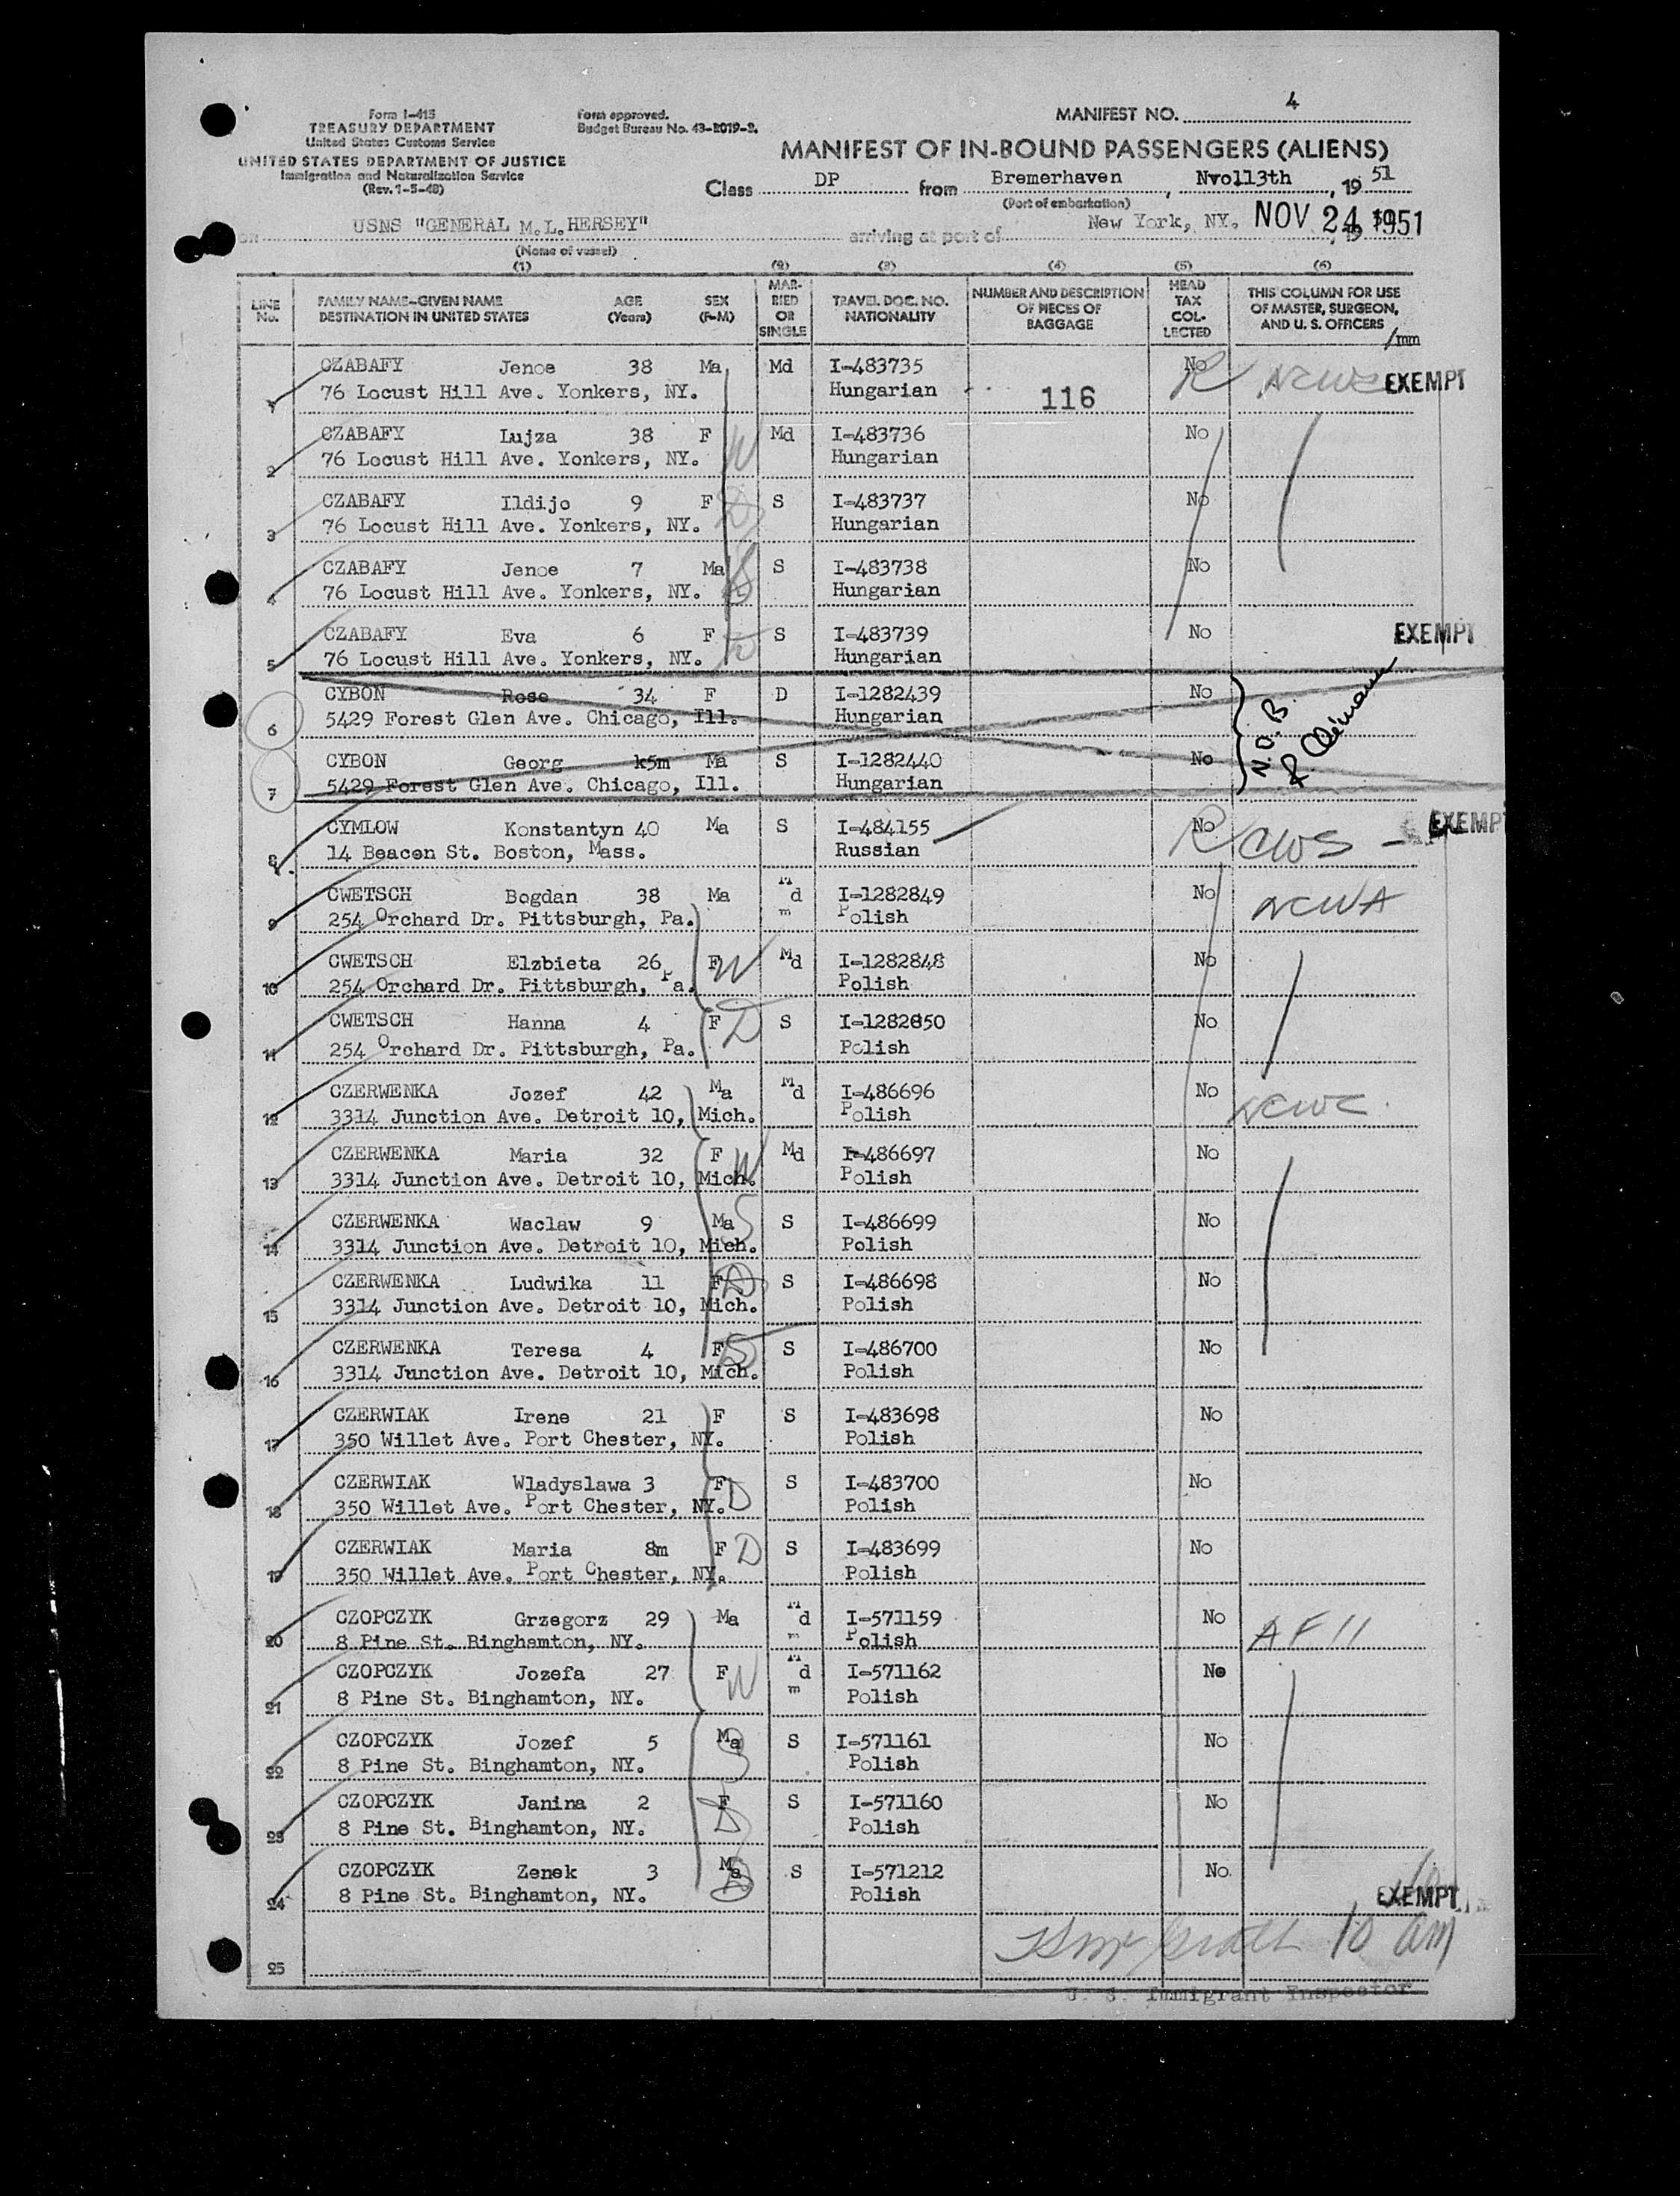 Form I-415
TREASURY DEPARTMENT
United States Customs Service
UNITED STATES DEPARTMENT OF JUSTICE
Immigration and Naturalization Service
(Rev. 1-5-48)
Form approved.
Budget Bureau No. 43-R019-2.
MANIFEST NO. 4
MANIFEST OF IN-BOUND PASSENGERS (ALIENS)
Class DP from Bremerhaven, Nvo113th, 19 51
(Port of embarkation)
on USNS "GENERAL M.L.HERSEY" arriving at port of New York, NY. NOV 24 1951
(Name of vessel)
(1) (2) (3) (4) (5) (6)
LINE No. FAMILY NAME—GIVEN NAME DESTINATION IN UNITED STATES AGE (Years) SEX (F-M) MARRIED OR SINGLE TRAVEL DOC. NO. NATIONALITY NUMBER AND DESCRIPTION OF PIECES OF BAGGAGE HEAD TAX COLLECTED THIS COLUMN FOR USE OF MASTER, SURGEON, AND U. S. OFFICERS
/mm
CZABAFY Jenoe 38 Ma Md I-483735 No R NCWC EXEMPT
1 76 Locust Hill Ave. Yonkers, NY. Hungarian 116
CZABAFY Lujza 38 F W Md I-483736 No
2 76 Locust Hill Ave. Yonkers, NY. Hungarian
CZABAFY Ildijo 9 F D S I-483737 No
3 76 Locust Hill Ave. Yonkers, NY. Hungarian
CZABAFY Jenoe 7 Ma S S I-483738 No
4 76 Locust Hill Ave. Yonkers, NY. Hungarian
CZABAFY Eva 6 F D S I-483739 No EXEMPT
5 76 Locust Hill Ave. Yonkers, NY. Hungarian
CYBON Rose 34 F D I-1282439 No N.O.B.
6 5429 Forest Glen Ave. Chicago, Ill. Hungarian
CYBON Georg k5m Ma S I-1282440 No
7 5429 Forest Glen Ave. Chicago, Ill. Hungarian
CYMLOW Konstantyn 40 Ma S I-484155 No R CWS EXEMPT
8 14 Beacon St. Boston, Mass. Russian
CWETSCH Bogdan 38 Ma Md I-1282849 No NCWA
9 254 Orchard Dr. Pittsburgh, Pa. m Polish
CWETSCH Elzbieta 26 F W Md I-1282848 No
10 254 Orchard Dr. Pittsburgh, Pa. Polish
CWETSCH Hanna 4 F D S I-1282850 No
11 254 Orchard Dr. Pittsburgh, Pa. Polish
CZERWENKA Jozef 42 Ma Md I-486696 No NCWC.
12 3314 Junction Ave. Detroit 10, Mich. Polish
CZERWENKA Maria 32 F W Md I-486697 No
13 3314 Junction Ave. Detroit 10, Mich. Polish
CZERWENKA Waclaw 9 Ma S S I-486699 No
14 3314 Junction Ave. Detroit 10, Mich. Polish
CZERWENKA Ludwika 11 F D S I-486698 No
15 3314 Junction Ave. Detroit 10, Mich. Polish
CZERWENKA Teresa 4 F D S I-486700 No
16 3314 Junction Ave. Detroit 10, Mich. Polish
CZERWIAK Irene 21 F S I-483698 No
17 350 Willet Ave. Port Chester, NY. Polish
CZERWIAK Wladyslawa 3 F D S I-483700 No
18 350 Willet Ave. Port Chester, NY. Polish
CZERWIAK Maria 8m F D S I-483699 No
19 350 Willet Ave. Port Chester, NY. Polish
CZOPCZYK Grzegorz 29 Ma Md I-571159 No AF11
20 8 Pine St. Binghamton, NY. m Polish
CZOPCZYK Jozefa 27 F W Md I-571162 No
21 8 Pine St. Binghamton, NY. m Polish
CZOPCZYK Jozef 5 Ma S S I-571161 No
22 8 Pine St. Binghamton, NY. Polish
CZOPCZYK Janina 2 F D S I-571160 No
23 8 Pine St. Binghamton, NY. Polish
CZOPCZYK Zenek 3 Ma S I-571212 No.
24 8 Pine St. Binghamton, NY. Polish EXEMPT
10 am
25
U. S. Immigrant Inspector